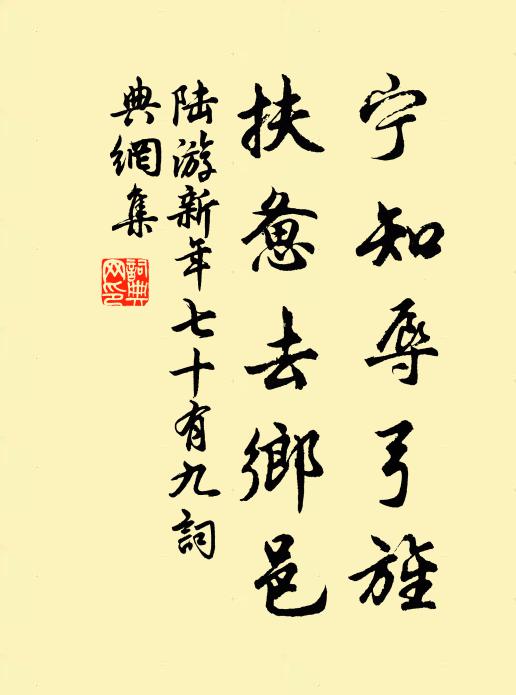 宁知辱弓旌
扶惫去鄉邑
陆游新年七十有九詞
典網集
詞典
网印